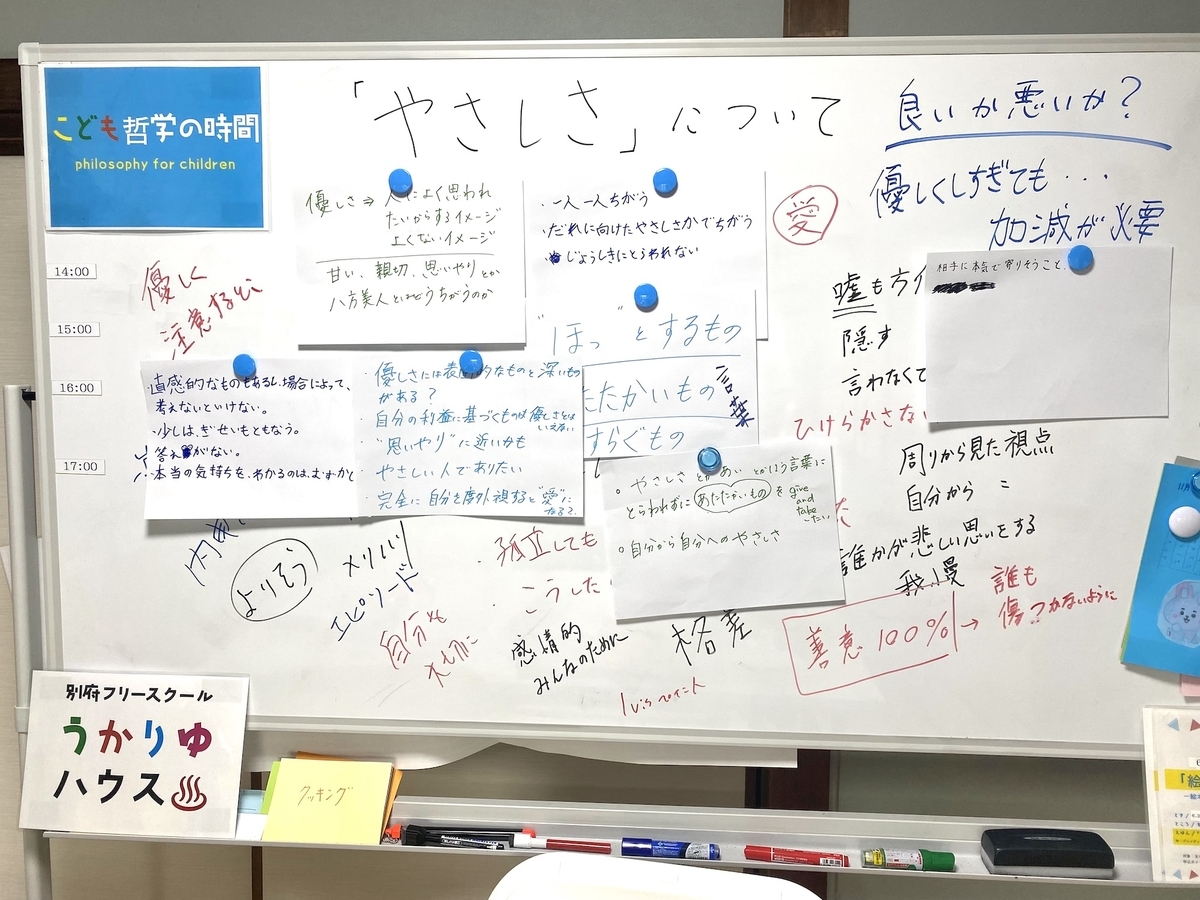 こども哲学の時間
philosophy for children
「やさしさ」について
良いか悪いか?
優しくしすぎても・・・
加減が必要
愛
優しさ⇒人によく思われ
たいからするイメージ
よくないイメージ
甘い、親切、思いやりとか
八方美人とはどうちがうのか
・一人一人ちがう
・だれに向けたやさしさかでちがう
・じょうしきにとらわれない
相手に本気で寄りそうこと、
14:00
15:00
16:00
17:00
優しく
注意するとき
嘘も方
隠す
言わなくて
ひけらかさない
"ほっ"とするもの
たたかいもの
言葉
すらぐもの
直感的なものもあるし、場合によって、
考えないといけない。
・少しは、ぎせいもともなう。
答えがない。
・本当の気持ちを、わかるのは、むずかし
・優しさには表面的なものと深いもの
がある?
・自分の利益に基づくものは優しさとは
いえない
・"思いやり"に近いかも
・やさしい人でありたい
・完全に自分を度外視すると"愛"に
なる?
。やさしさとかあいとかいう言葉に
とらわれずにあたたかいものを give
and
take
したい
。自分から自分へのやさしさ
周りから見た視点
自分から
誰かが悲しい思いをする
我慢
よりそう
メリハリ
エピソード
・孤立しても
・こうした
自分も
大切に
感情的
みんなのために
格差
善意100%→
誰も
傷つかないように
別府フリースクール
うかりゆ
ハウス
クッキング